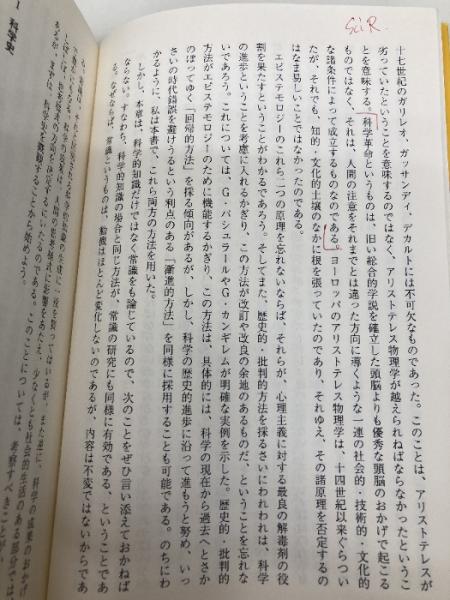 Sci R.
十七世紀のガリレオ、ガッサンディ、デカルトには不可欠なものであった。このことは、アリストテレスが
劣っていたということを意味するのではなく、アリストテレス物理学が越えられねばならなかったというこ
とを意味する。科学革命というものは、旧い総合的学説を確立した頭脳よりも優秀な頭脳のおかげで起こる
ものではなく、それは、人間の注意をそれまでとは違った方向に導くような一連の社会的・技術的・文化的
な諸条件によって成立するものなのである。ヨーロッパのアリストテレス物理学は、十四世紀以来ぐらつい
たが、それでも、知的・文化的土壌のなかに根を張っていたのであり、それゆえ、その諸原理を否定するの
はなま易しいことではなかったのである。
エピステモロジーのこれら二つの原理を忘れないならば、それらが、心理主義に対する最良の解毒剤の役
割を果たすということがわかるであろう。そしてまた、歴史的・批判的方法を採るさいにわれわれは、科学
の進歩ということを考慮に入れるかぎり、この方法が改訂や改良の余地のあるものだ、ということを忘れな
いであろう。これについては、G・バシュラールやG・カンギレムが明確な実例を示した。歴史的・批判的
方法がエピステモロジーのために機能するかぎり、この方法は、具体的には、科学の現在から過去へとさか
のぼってゆく「回帰的方法」を採る傾向があるが、しかし、科学の歴史的進歩に沿って進もうと努め、いっ
さいの時代錯誤を避けうるという利点のある「漸進的方法」を同様に採用することも可能である。のちにわ
かるように、私は本書で、これら両方の方法を用いた。
しかし、本章は、科学的知識だけではなく常識をも論じているので、次のことをぜひ言い添えておかねば
ならない。すなわち、科学的知識の場合と同じ方法が、常識の研究にも同様に有効である、ということであ
る。なぜならば、常識というものは、動機はほとんど変化しないのであるが、内容は不変ではないからであ
1 科学史